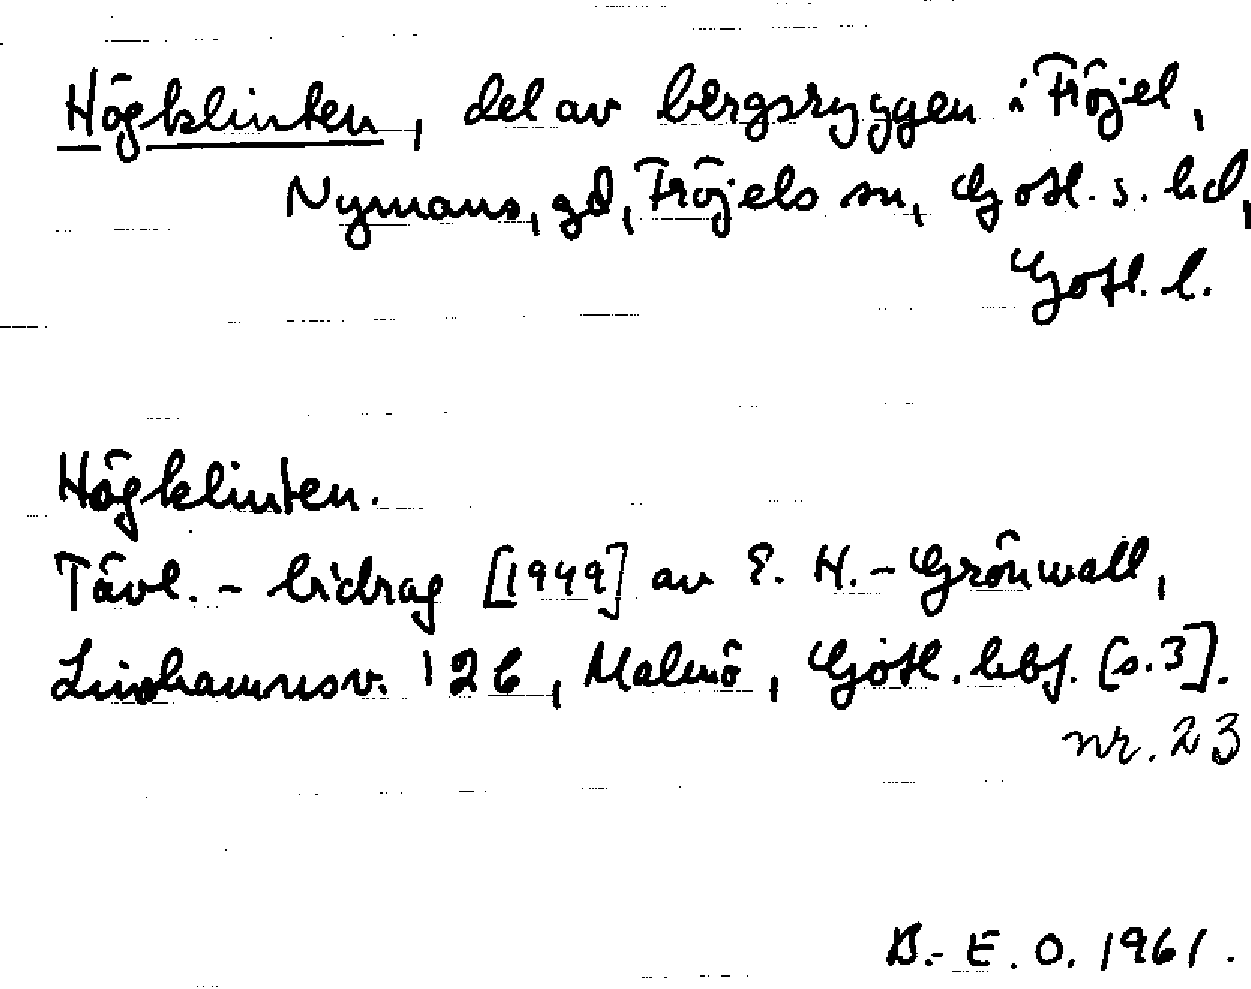 Högklinten, del av bergsryggen i Fröjel,
Nymans, gd, Fröjels sn, Gotl. s. hd,
Gotl. l.
Högklinten.
Tävl.-bidrag [1949] av E. H.-Grönwall,
Limhamnsv. 12b, Malmö, Gotl. hbf. [s.3].
nr. 23
B.-E. O. 1961.